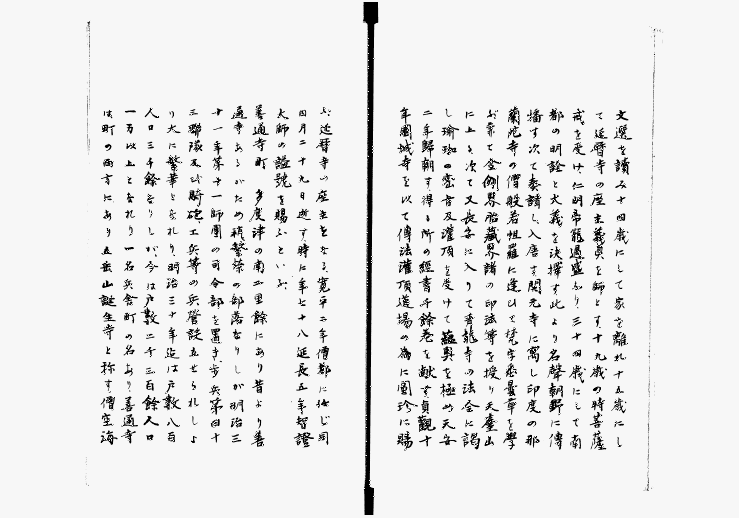 文選を讀み十四歳にして家を離れ十五歳にし
て延暦寺の座主義真を師とす十九歳の時菩薩
戒を受け仁明帝寵遇盛なり三十四歳にして南
都の明詮と大義を決擇す此より名聲朝野に傳
播す次て奏請し入唐す開元寺に寓し印度の那
蘭陀寺の僧般若怛羅に逢ひて梵字悉曇章を學
ぶ兼て金剛界胎藏界諸の印法等を授り天臺山
に上り次て又長安に入りて青龍寺の法全に謁
し瑜珈の密旨及灌頂を受けて蘊奥を極め天安
二年歸朝す得る所の經書千餘卷を献す貞觀十
年園城寺を以て傳法灌頂道場の為に圓珍に賜
ふ延暦寺の座主となる寛平二年僧都に任じ同
四月二十九日逝す時に年七十八延長五年智證
大師の謚號を賜ふといふ
善通寺町 多度津の南二里餘にあり昔より善
通寺あるがため稍繁榮の部落なりしが明治三
十一年第十一師團の司令部を置き歩兵第四十
三聯隊及び騎砲、工兵等の兵營設立せられしよ
り大に繁華となれり、明治三十年迄は戸數八百
人口三千餘なりしが、今は戸數二千三百餘人口
一万以上となれり一名兵舎町の名あり善通寺
は町の西方にあり五岳山誕生寺と称す僧空海